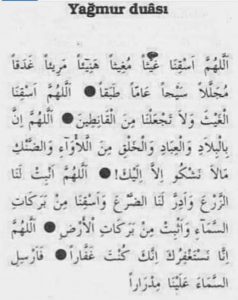 Yağmur duâsı
اَللّٰهُمَّ اَسْقِنَا غَيْثاً مُغِيثاً هَنِيئاً مَرِيئاً غَدَقاً
مُجَلَّلاً سَيْحاً عَامّاً طَبَقاً ● اَللّٰهُمَّ اَسْقِنَا
الْغَيْثَ وَلاَ تَجْعَلْنَا مِنَ الْقَانِطِينَ ● اَللّٰهُمَّ اِنَّ
بِالْبِلَادِ وَالْعِبَادِ وَالْخَلْقِ مِنَ اللَّأْوَآءِ وَالضَّنْكِ
مَالاَ نَشْكُو اِلاَّ اِلَيْكَ! ● اَللّٰهُمَّ اَنْبِتْ لَنَا
الزَّرْعَ وَاَدِرَّ لَنَا الضَّرْعَ وَاَسْقِنَا مِنْ بَرَكَاتِ
السَّمَآءِ وَاَنْبِتْ مِنْ بَرَكَاتِ الْاَرْضِ ● اَللّٰهُمَّ
اِنَّا نَسْتَغْفِرُكَ اِنَّكَ كُنْتَ غَفَّاراً ● فَاَرْسِلِ
السَّمَآءَ عَلَيْنَا مِدْرَاراً